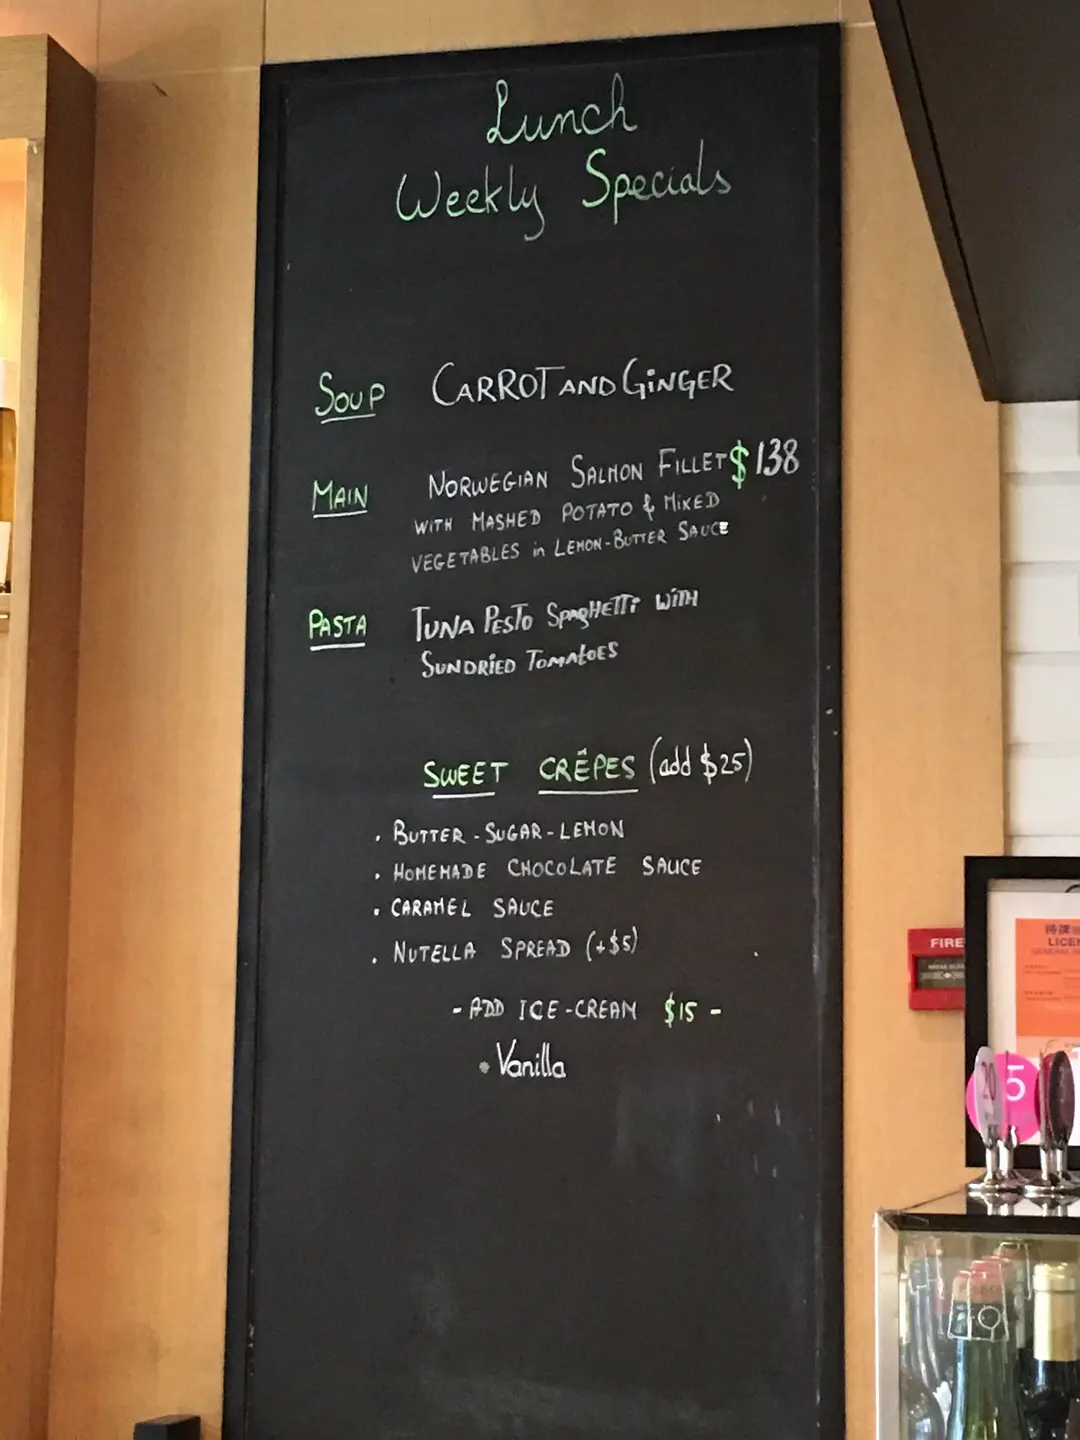 Lunch
Weekly Specials
SOUP CARROT AND GINGER
MAIN NORWEGIAN SALMON FILLET $138
WITH MASHED POTATO & MIXED
VEGETABLES in LEMON-BUTTER SAUCE
PASTA TUNA PESTO SPAGHETTI WITH
SUNDRIED TOMATOES
SWEET CRÊPES (add $25)
• BUTTER - SUGAR - LEMON
• HOMEMADE CHOCOLATE SAUCE
• CARAMEL SAUCE
• NUTELLA SPREAD (+$5)
- ADD ICE-CREAM $15 -
• Vanilla
FIRE
LICEN
20
5